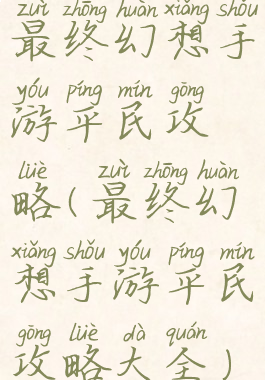 zuì zhōng huàn xiǎng shǒu
最终幻想手
yóu píng mín gōng
游平民攻
lüè zuì zhōng huàn
略(最终幻
xiǎng shǒu yóu píng mín
想手游平民
gōng lüè dà quán
攻略大全)